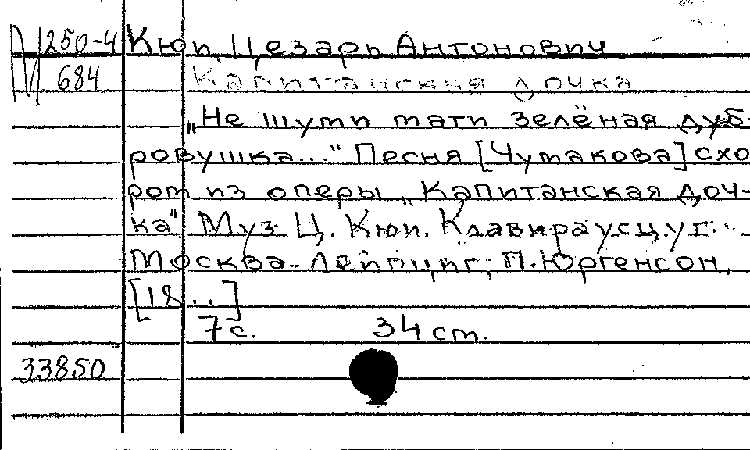 M 250-4 Кюи, Цезарь Антонович
684 Капитанская дочка
„Не шуми мати зелёная дуб-
ровушка..." Песня [Чумакова] схо
ром из оперы „Капитанская доч-
ка" Муз. Ц. Кюи. Клавираусцуг.
Москва-Лейпциг, П. Юргенсон,
[18..]
7 с. 34 см.
33850